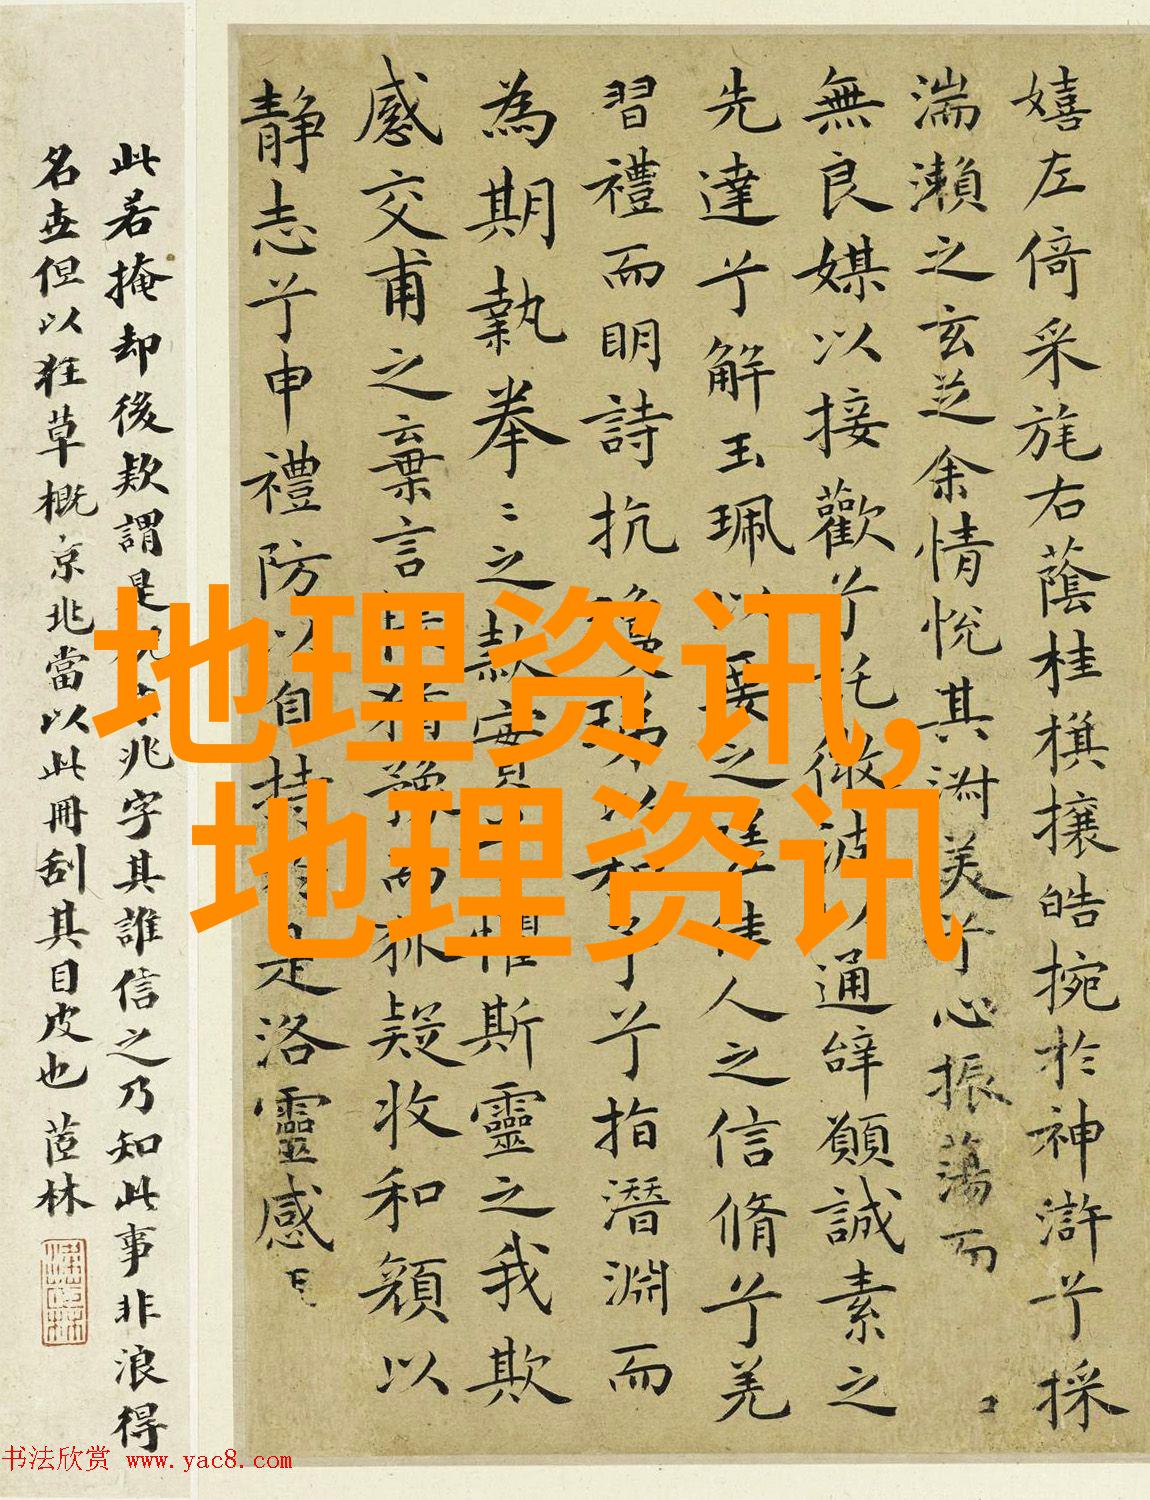 嬉左倚采旄右蔭桂旗攘皓捥於神滸兮採
湍瀨之玄芝余情悅其淑美兮心振蕩而
無良媒以接歡兮託微波以通辭願誠素之
先達兮解玉珮以要之嗟佳人之信脩兮羌
習禮而明詩抗瓊珶以和予兮指潛淵而
為期執拳〻之款實兮懼斯靈之我欺
感交甫之棄言悵猶豫而狐疑收和顏以
静志兮申禮防以自持於是洛靈感
此若掩却後款謂是祝京兆字其誰信之乃知此事非浪得
名世但以狂草概京兆當以此冊刮其目皮也 茝林
地理资讯,
地理资讯
书法欣赏 www.yac8.com